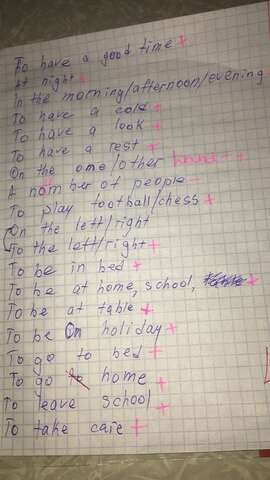 To have a good time +
at night +
In the morning/afternoon/evening
To have a cold +
To have a look +
To have a rest +
On the one/other hand - +
A number of people -
To play football/chess +
On the left/right
To the left/right +
To be in bed +
To be at home, school, +
To be at table +
To be on holiday +
To go to bed +
To go to home +
To leave school +
To take care +